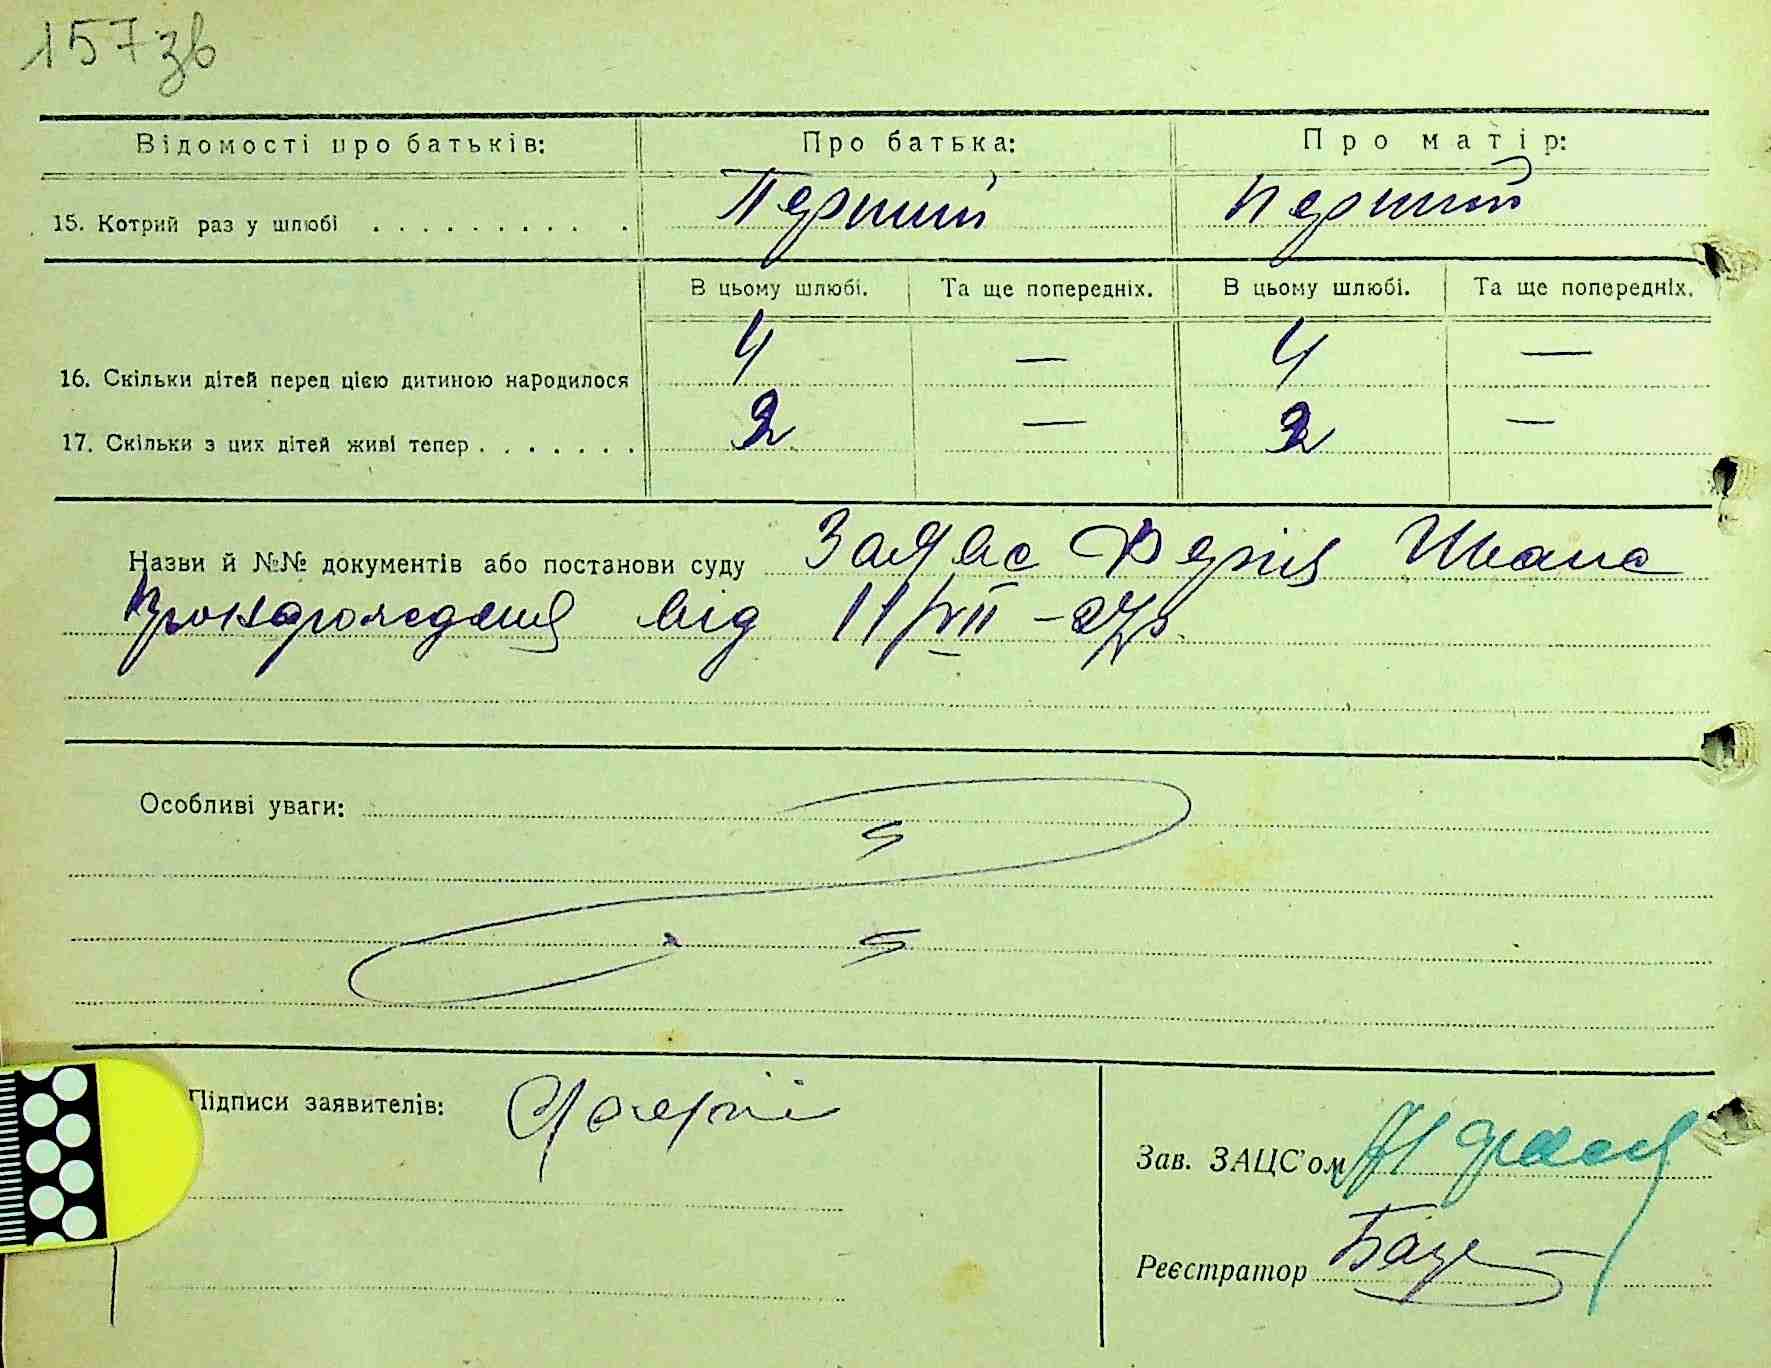 157 зв
Відомості про батьків: Про батька: Про матір:
15. Котрий раз у шлюбі . . . . . . . . . . . Перший Перший
В цьому шлюбі. Та ще попередніх. В цьому шлюбі. Та ще попередніх.
16. Скільки дітей перед цією дитиною народилося 4 — 4 —
17. Скільки з цих дітей живі тепер . . . . . . . 2 — 2 —
Назви й №№ документів або постанови суду Заява Ферія Ивана
від 11/VII – 27р.
Особливі уваги:
Підписи заявителів:
Зав. ЗАЦС'ом
Реєстратор